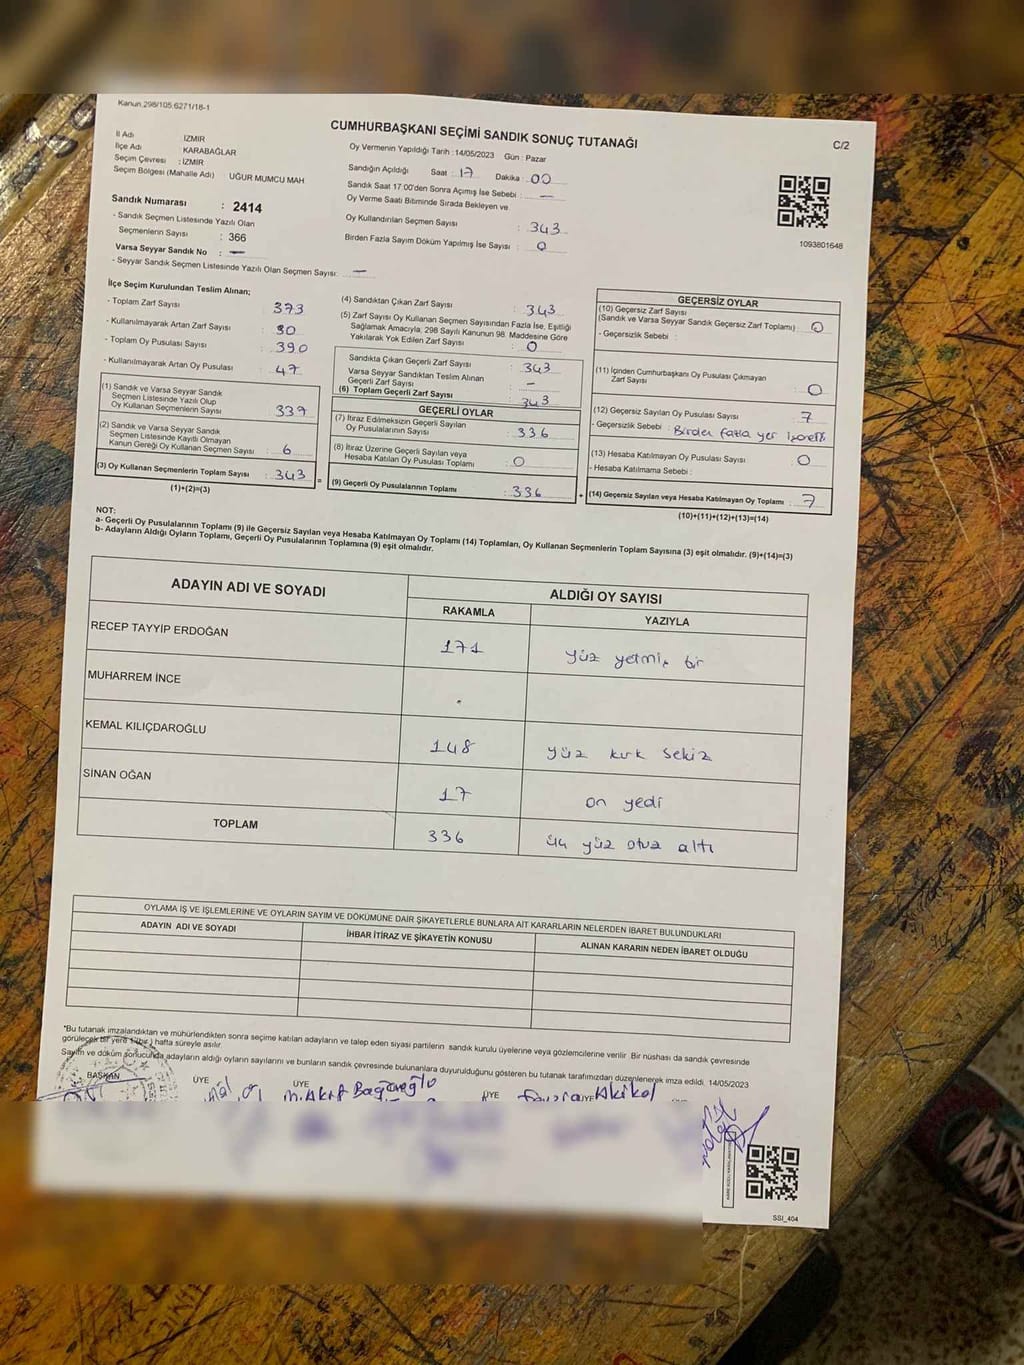 Kanun.298/105,6271/18-1
CUMHURBAŞKANI SEÇİMİ SANDIK SONUÇ TUTANAĞI
C/2
İl Adı İZMİR
İlçe Adı KARABAĞLAR
Seçim Çevresi : İZMİR
Seçim Bölgesi (Mahalle Adı) UĞUR MUMCU MAH
Oy Vermenin Yapıldığı Tarih : 14/05/2023 Gün : Pazar
Sandığın Açıldığı Saat : 17 Dakika : 00
Sandık Saat 17:00'den Sonra Açımış İse Sebebi : —
Oy Verme Saati Bitiminde Sırada Bekleyen ve
Oy Kullandırılan Seçmen Sayısı : 343
Birden Fazla Sayım Döküm Yapılmış İse Sayısı : 0
1093801648
Sandık Numarası : 2414
- Sandık Seçmen Listesinde Yazılı Olan
Seçmenlerin Sayısı : 366
Varsa Seyyar Sandık No : —
- Seyyar Sandık Seçmen Listesinde Yazılı Olan Seçmen Sayısı: —
İlçe Seçim Kurulundan Teslim Alınan;
- Toplam Zarf Sayısı : 373
- Kullanılmayarak Artan Zarf Sayısı : 30
- Toplam Oy Pusulası Sayısı : 390
- Kullanılmayarak Artan Oy Pusulası : 47
(1) Sandık ve Varsa Seyyar Sandık
Seçmen Listesinde Yazılı Olup
Oy Kullanan Seçmenlerin Sayısı : 337
(2) Sandık ve Varsa Seyyar Sandık
Seçmen Listesinde Kayıtlı Olmayan
Kanun Gereği Oy Kullanan Seçmen Sayısı : 6
(3) Oy Kullanan Seçmenlerin Toplam Sayısı : 343
(1)+(2)=(3)
(4) Sandıktan Çıkan Zarf Sayısı : 343
(5) Zarf Sayısı Oy Kullanan Seçmen Sayısından Fazla İse, Eşitliği
Sağlamak Amacıyla, 298 Sayılı Kanunun 98. Maddesine Göre
Yakılarak Yok Edilen Zarf Sayısı : 0
Sandıkta Çıkan Geçerli Zarf Sayısı : 343
Varsa Seyyar Sandıktan Teslim Alınan
Geçerli Zarf Sayısı : —
(6) Toplam Geçerli Zarf Sayısı : 343
GEÇERLİ OYLAR
(7) İtiraz Edilmeksizin Geçerli Sayılan
Oy Pusulalarının Sayısı : 336
(8) İtiraz Üzerine Geçerli Sayılan veya
Hesaba Katılan Oy Pusulası Toplamı : 0
(9) Geçerli Oy Pusulalarının Toplamı : 336
GEÇERSİZ OYLAR
(10) Geçersiz Zarf Sayısı
(Sandık ve Varsa Seyyar Sandık Geçersiz Zarf Toplamı) : 0
- Geçersizlik Sebebi :
(11) İçinden Cumhurbaşkanı Oy Pusulası Çıkmayan
Zarf Sayısı : 0
(12) Geçersiz Sayılan Oy Pusulası Sayısı : 7
- Geçersizlik Sebebi : Birden fazla yer işaretli
(13) Hesaba Katılmayan Oy Pusulası Sayısı : 0
- Hesaba Katılmama Sebebi :
(14) Geçersiz Sayılan veya Hesaba Katılmayan Oy Toplamı : 7
(10)+(11)+(12)+(13)=(14)
NOT:
a- Geçerli Oy Pusulalarının Toplamı (9) ile Geçersiz Sayılan veya Hesaba Katılmayan Oy Toplamı (14) Toplamları, Oy Kullanan Seçmenlerin Toplam Sayısına (3) eşit olmalıdır. (9)+(14)=(3)
b- Adayların Aldığı Oyların Toplamı, Geçerli Oy Pusulalarının Toplamına (9) eşit olmalıdır.
ADAYIN ADI VE SOYADI
ALDIĞI OY SAYISI
RAKAMLA YAZIYLA
RECEP TAYYİP ERDOĞAN 171 yüz yetmiş bir
MUHARREM İNCE .
KEMAL KILIÇDAROĞLU 148 yüz kırk sekiz
SİNAN OĞAN 17 on yedi
TOPLAM 336 üç yüz otuz altı
OYLAMA İŞ VE İŞLEMLERİNE VE OYLARIN SAYIM VE DÖKÜMÜNE DAİR ŞİKAYETLERLE BUNLARA AİT KARARLARIN NELERDEN İBARET BULUNDUKLARI
ADAYIN ADI VE SOYADI İHBAR İTİRAZ VE ŞİKAYETİN KONUSU ALINAN KARARIN NEDEN İBARET OLDUĞU
"Bu tutanak imzalandıktan ve mühürlendikten sonra seçime katılan adayların ve talep eden siyasi partilerin sandık kurulu üyelerine veya gözlemcilerine verilir. Bir nüshası da sandık çevresinde
görülecek bir yere 1 (bir) hafta süreyle asılır.
Sayım ve döküm sonucunda adayların aldığı oyların sayılarını ve bunların sandık çevresinde bulunanlara duyurulduğunu gösteren bu tutanak tarafımızdan düzenlenerek imza edildi. 14/05/2023
BAŞKAN ÜYE ÜYE ÜYE ÜYE
M. Akif Akikol
SSI_404